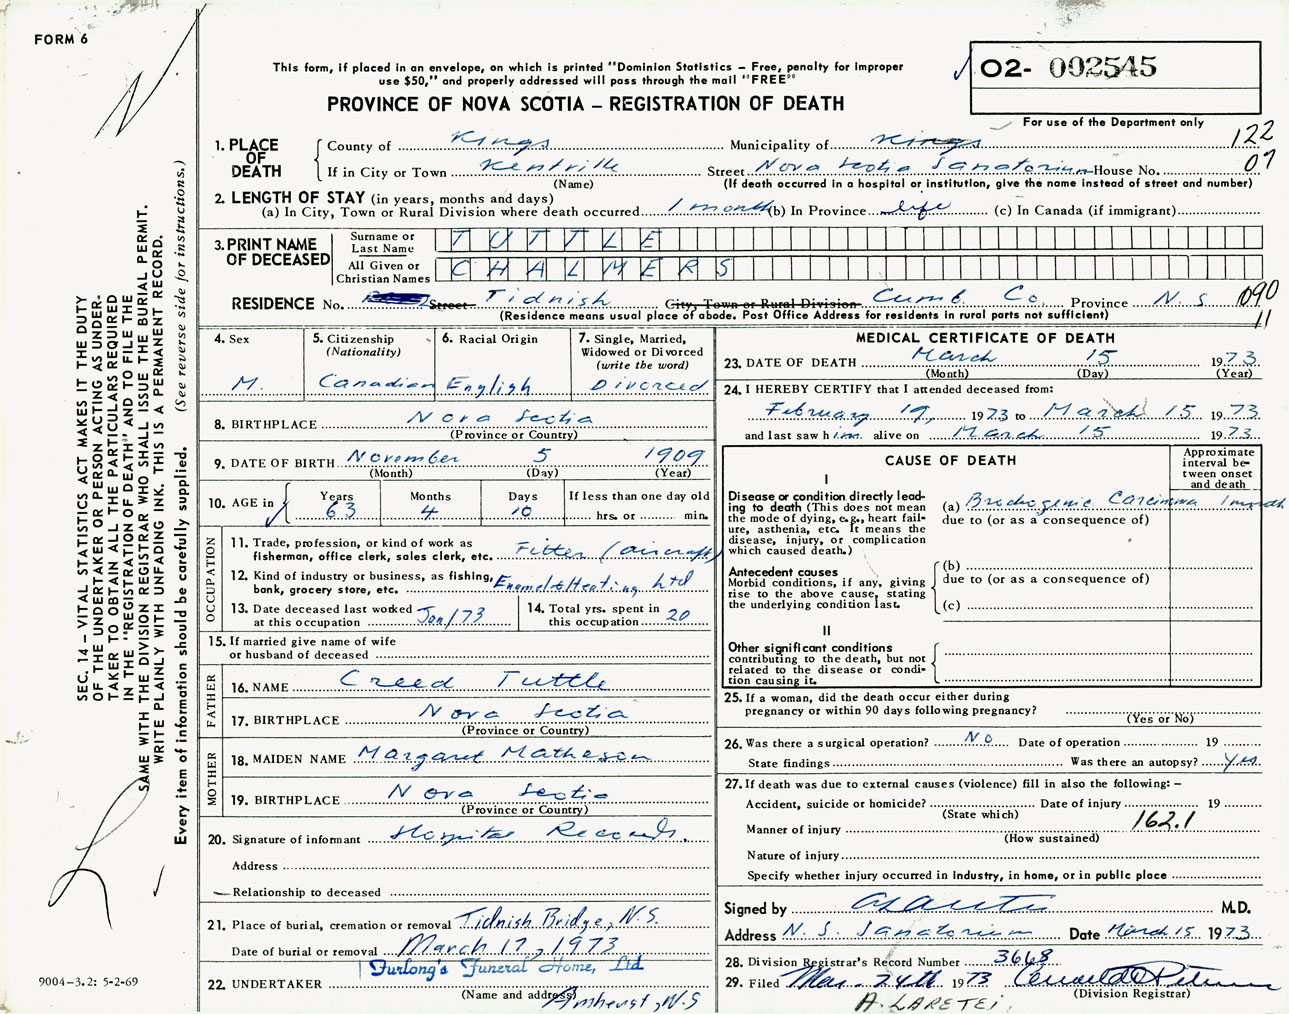 FORM 6
This form, if placed in an envelope, on which is printed "Dominion Statistics – Free, penalty for improper
use $50," and properly addressed will pass through the mail "FREE"
02- 002545
PROVINCE OF NOVA SCOTIA – REGISTRATION OF DEATH
For use of the Department only
122
07
1. PLACE OF DEATH
County of Kings Municipality of Kings
If in City or Town Kentville Street Nova Scotia Sanatorium House No.
(Name) (If death occurred in a hospital or institution, give the name instead of street and number)
2. LENGTH OF STAY (in years, months and days)
(a) In City, Town or Rural Division where death occurred 1 month (b) In Province life (c) In Canada (if immigrant)
3. PRINT NAME OF DECEASED
Surname or Last Name TUTTLE
All Given or Christian Names CHALMERS
RESIDENCE No. Street Tidnish City, Town or Rural Division Cumb. Co. Province N.S
(Residence means usual place of abode. Post Office Address for residents in rural parts not sufficient)
1090
11
4. Sex M.
5. Citizenship (Nationality) Canadian
6. Racial Origin English
7. Single, Married, Widowed or Divorced (write the word) Divorced
8. BIRTHPLACE Nova Scotia
(Province or Country)
9. DATE OF BIRTH November 5 1909
(Month) (Day) (Year)
10. AGE in Years 63 Months 4 Days 10 If less than one day old hrs. or min.
OCCUPATION
11. Trade, profession, or kind of work as fisherman, office clerk, sales clerk, etc. Fitter (aircraft)
12. Kind of industry or business, as fishing, bank, grocery store, etc. Enamel & Heating Ltd
13. Date deceased last worked at this occupation Jan/73
14. Total yrs. spent in this occupation 20
15. If married give name of wife or husband of deceased
FATHER
16. NAME Creed Tuttle
17. BIRTHPLACE Nova Scotia
(Province or Country)
MOTHER
18. MAIDEN NAME Margaret Matheson
19. BIRTHPLACE Nova Scotia
(Province or Country)
20. Signature of informant Hospital Records.
Address
Relationship to deceased
21. Place of burial, cremation or removal Tidnish Bridge, N.S.
Date of burial or removal March 17, 1973
22. UNDERTAKER Furlong's Funeral Home, Ltd
(Name and address) Amherst, N.S
MEDICAL CERTIFICATE OF DEATH
23. DATE OF DEATH March 15 1973
(Month) (Day) (Year)
24. I HEREBY CERTIFY that I attended deceased from:
February 19, 1973 to March 15 1973
and last saw him alive on March 15 1973
CAUSE OF DEATH
Approximate interval between onset and death
I
Disease or condition directly leading to death (This does not mean the mode of dying, e.g., heart failure, asthenia, etc. It means the disease, injury, or complication which caused death.)
(a) Brochogenic Carcinma 1 month
due to (or as a consequence of)
Antecedent causes
Morbid conditions, if any, giving rise to the above cause, stating the underlying condition last.
(b)
due to (or as a consequence of)
(c)
II
Other significant conditions
contributing to the death, but not related to the disease or condition causing it.
25. If a woman, did the death occur either during pregnancy or within 90 days following pregnancy?
(Yes or No)
26. Was there a surgical operation? No Date of operation 19
State findings Was there an autopsy? Yes.
27. If death was due to external causes (violence) fill in also the following: –
Accident, suicide or homicide? Date of injury 19
(State which)
162.1
Manner of injury
(How sustained)
Nature of injury
Specify whether injury occurred in industry, in home, or in public place
Signed by M.D.
Address N. S. Sanatorium Date March 15 1973
28. Division Registrar's Record Number 3668
29. Filed Mar. 24th 1973
(Division Registrar)
A. LARETEI
SEC. 14 – VITAL STATISTICS ACT MAKES IT THE DUTY
OF THE UNDERTAKER OR PERSON ACTING AS UNDER-
TAKER TO OBTAIN ALL THE PARTICULARS REQUIRED
IN THE "REGISTRATION OF DEATH" AND TO FILE THE
SAME WITH THE DIVISION REGISTRAR WHO SHALL ISSUE THE BURIAL PERMIT.
WRITE PLAINLY WITH UNFADING INK. THIS IS A PERMANENT RECORD.
Every item of information should be carefully supplied. (See reverse side for instructions.)
9004–3.2: 5-2-69